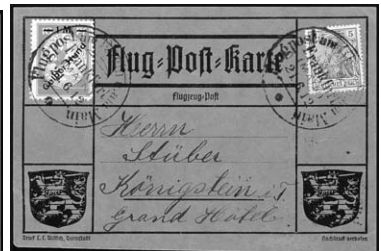 1 M
Gelber Hund
5
Flug-Post-Karte
Flugzeug-Post
Herrn
Stüber
Königstein i. T.
Grand Hôtel
Druck L. C. Wittich, Darmstadt
Nachdruck verboten